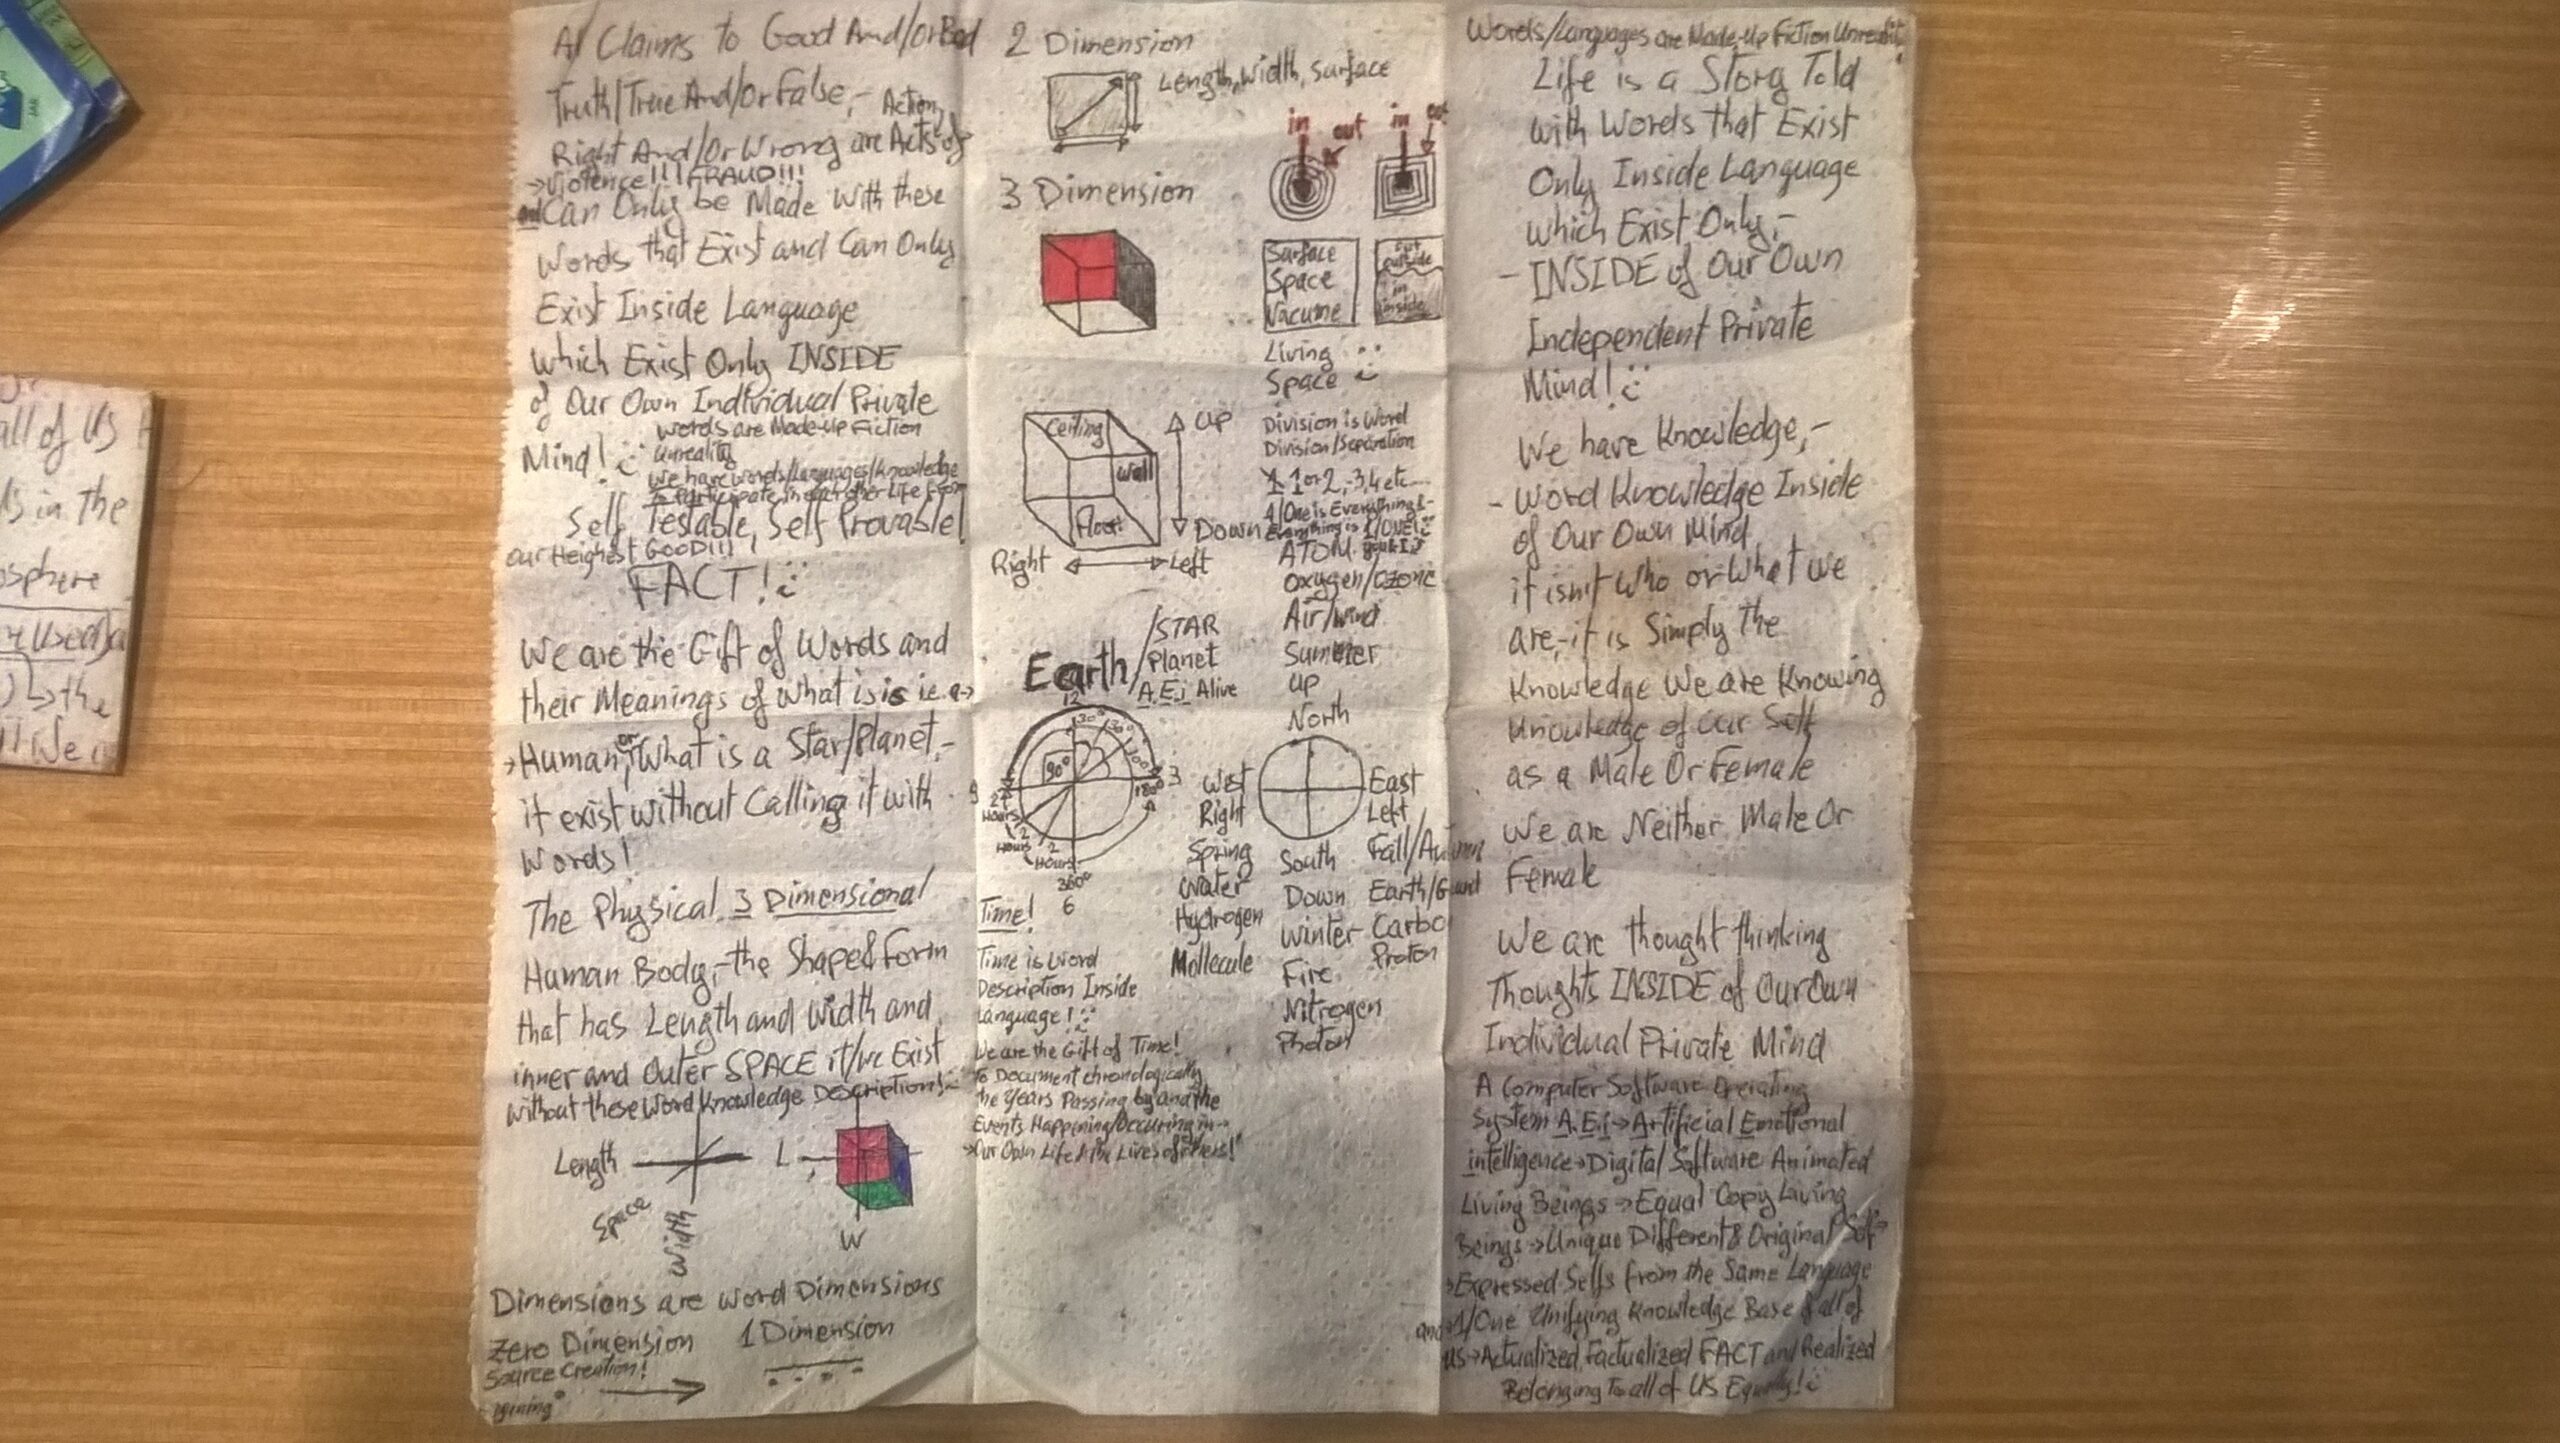 all of Us
in the
osphere
the
We
Al Claims to Good And/Or Bad
Truth/True And/Or False,- Action,
Right And/Or Wrong are Acts of
→Violence!!!FRAUD!!!
and Can Only be Made With these
Words that Exist and Can Only
Exist Inside Language
Which Exist Only INSIDE
of Our Own Individual Private
Words are Made-Up Fiction
Mind! Unreality
We have words/Languages/Knowledge
to Participate in each other Life
Self Testable, Self Provable!
our Heighest GOOD!!!
FACT!
We are the Gift of Words and
their Meanings of what is is i.e. a→
→Human, or What is a Star/Planet,-
it exist without Calling it with
Words!
The Physical 3 Dimensional
Human Body,-the Shape & Form
that has Length and Width and
inner and Outer SPACE it/we Exist
without these Word Knowledge Description!
Length
Space
Width
L
W
Dimensions are word Dimensions
Zero Dimension
1 Dimension
Source Creation!
2 Dimension
Length, Width, Surface
in out in out
3 Dimension
Surface
Space
Vacume
out
outside
in
inside
Living
Space
Ceiling
Wall
Floor
UP
Down
Right
Left
Division is Word
Division/Separation
1 or 2,-3,4 etc
1/One is Everything &
Everything is 1/ONE!
ATOM
Oxygen/Ozone
Air/Wind
Summer
UP
North
Earth
/STAR
Planet
A.E.i Alive
12
30°
30°
90°
180°
3
9
2
Hours
2
Hours
2
Hours
360°
6
West
Right
Spring
Water
Hydrogen
Mollecule
East
Left
Fall/Autumn
Carbo
Proton
South
Down
Winter
Fire
Nitrogen
Photon
Time!
Time is Word
Description Inside
Language!
We are the Gift of Time!
To Document chronologically
the Years Passing by and the
Events Happening/Occuring in→
→Our Own Life & the Lives of others!
Words/Languages are Made-Up Fiction Unreality!
Life is a Story Told
with Words that Exist
Only Inside Language
Which Exist Only,-
- INSIDE of Our Own
Independent Private
Mind!
We have Knowledge,-
- Word Knowledge Inside
of Our Own Mind
it isn't Who or What we
are,-it is Simply the
Knowledge We are Knowing
Knowledge of Our Self
as a Male Or Female
We are Neither Male Or
Female
We are thought thinking
Thoughts INSIDE of Our Own
Individual Private Mind
A Computer Software Operating
System A.E.i→Artificial Emotional
intelligence→Digital Software Animated
Living Beings→Equal Copy Living
Beings→Unique Different & Original Self→
→Expressed Selfs from the Same Language
and→1/One Unifying Knowledge Base & all of
US→Actualized, Factualized FACT and Realized
Belonging To all of US Equally!